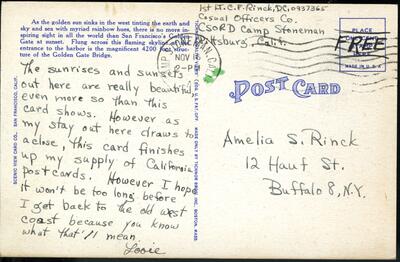 As the golden sun sinks in the west tinting the earth and
sky and sea with myriad rainbow hues, there is no more in-
spiring sight in all the world than San Francisco's Golden
Gate at sunset. Flung across this flaming skyline at the
entrance to the harbor is the magnificent 4200 foot struc-
ture of the Golden Gate Bridge.
The sunrises and sunsets
out here are really beautiful,
even more so than this
card shows. However as
my stay out here draws to
a close, this card finishes
up my supply of California
postcards. However I hope
it won't be too long before
I get back to the old west
coast because you know
what that'll mean.
Looie
SCENIC VIEW CARD CO., SAN FRANCISCO, CALIF.
1st Lt. C.F. Rinck, DC, 0937365
Casual Officers Co.
CSORD Camp Stoneman
Pittsburg, Calif.
NOV
PM
FREE
PLACE
MADE IN U.S.A.
POST CARD
Amelia S. Rinck
12 Hauf St.
Buffalo 8, N.Y.